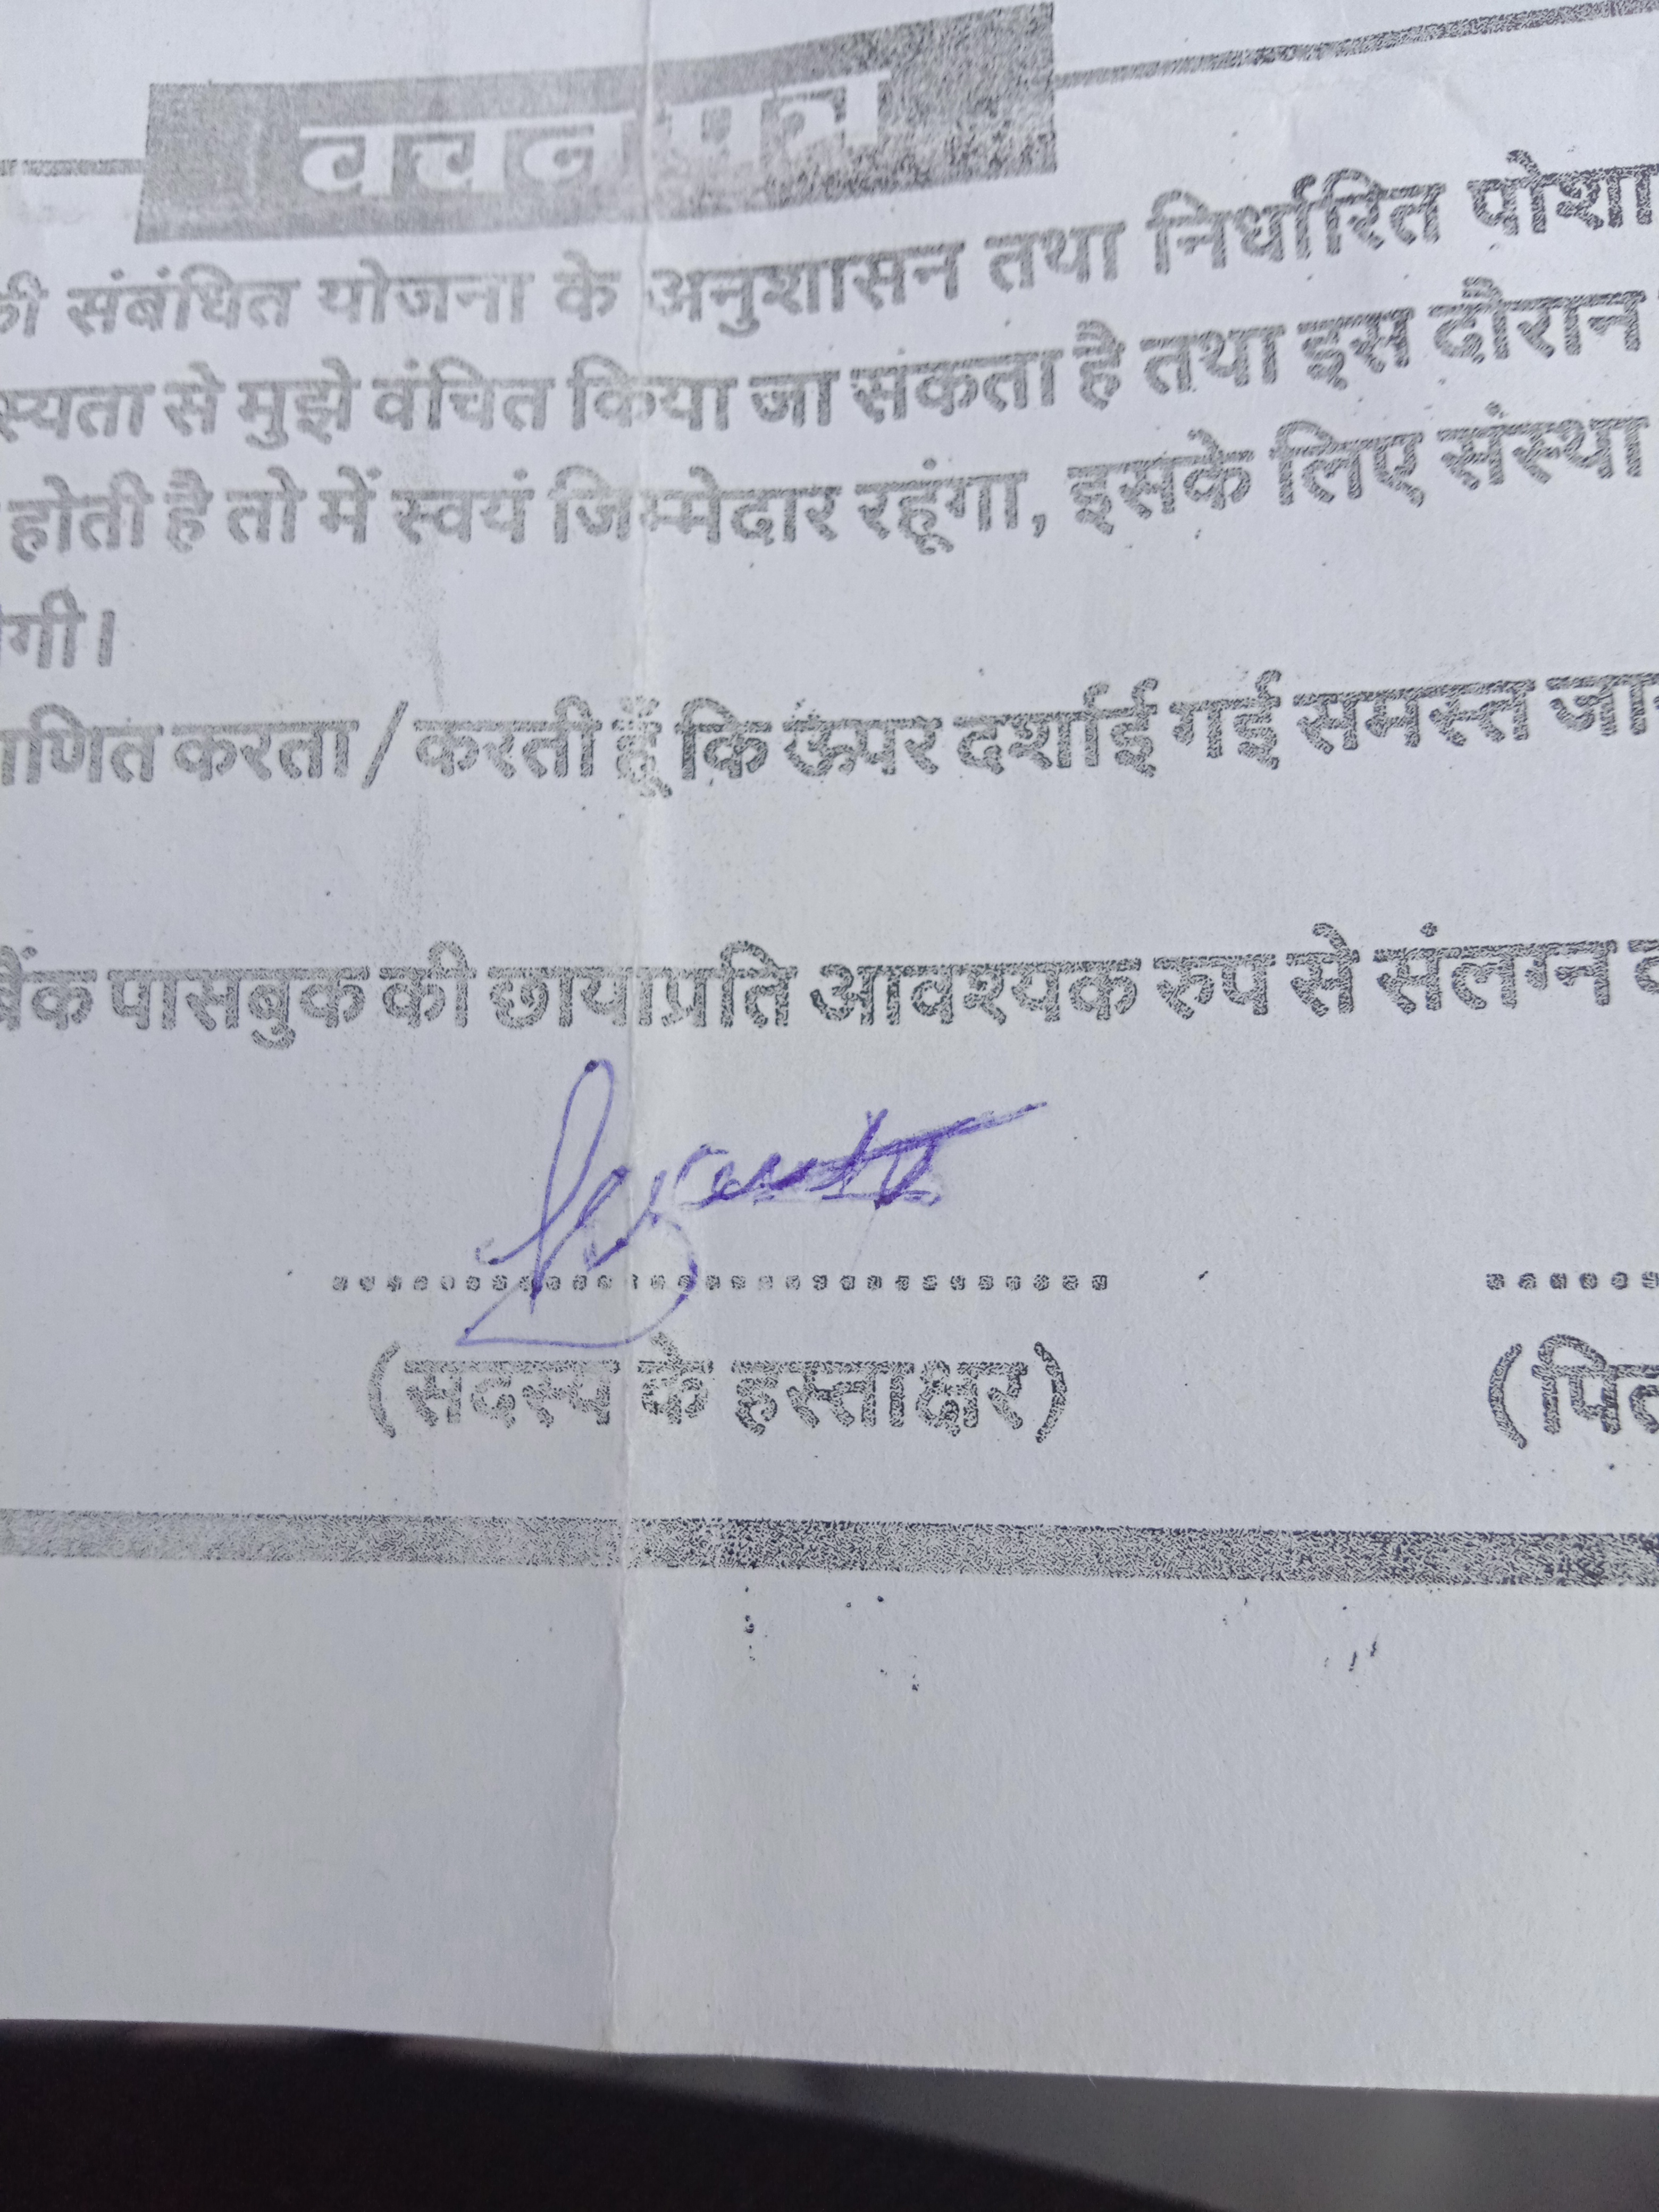 वचन पत्र
की संबंधित योजना के अनुशासन तथा निर्धारित पोशा
स्यता से मुझे वंचित किया जा सकता है तथा इस दौरान
होती है तो में स्वयं जिम्मेदार रहूंगा, इसके लिए संस्था
गी।
ाणित करता / करती हूँ कि ऊपर दर्शाई गई समस्त जान
बैंक पासबुक की छायाप्रति आवश्यक रुप से संलग्न
(सदस्य के हस्ताक्षर)
(पित